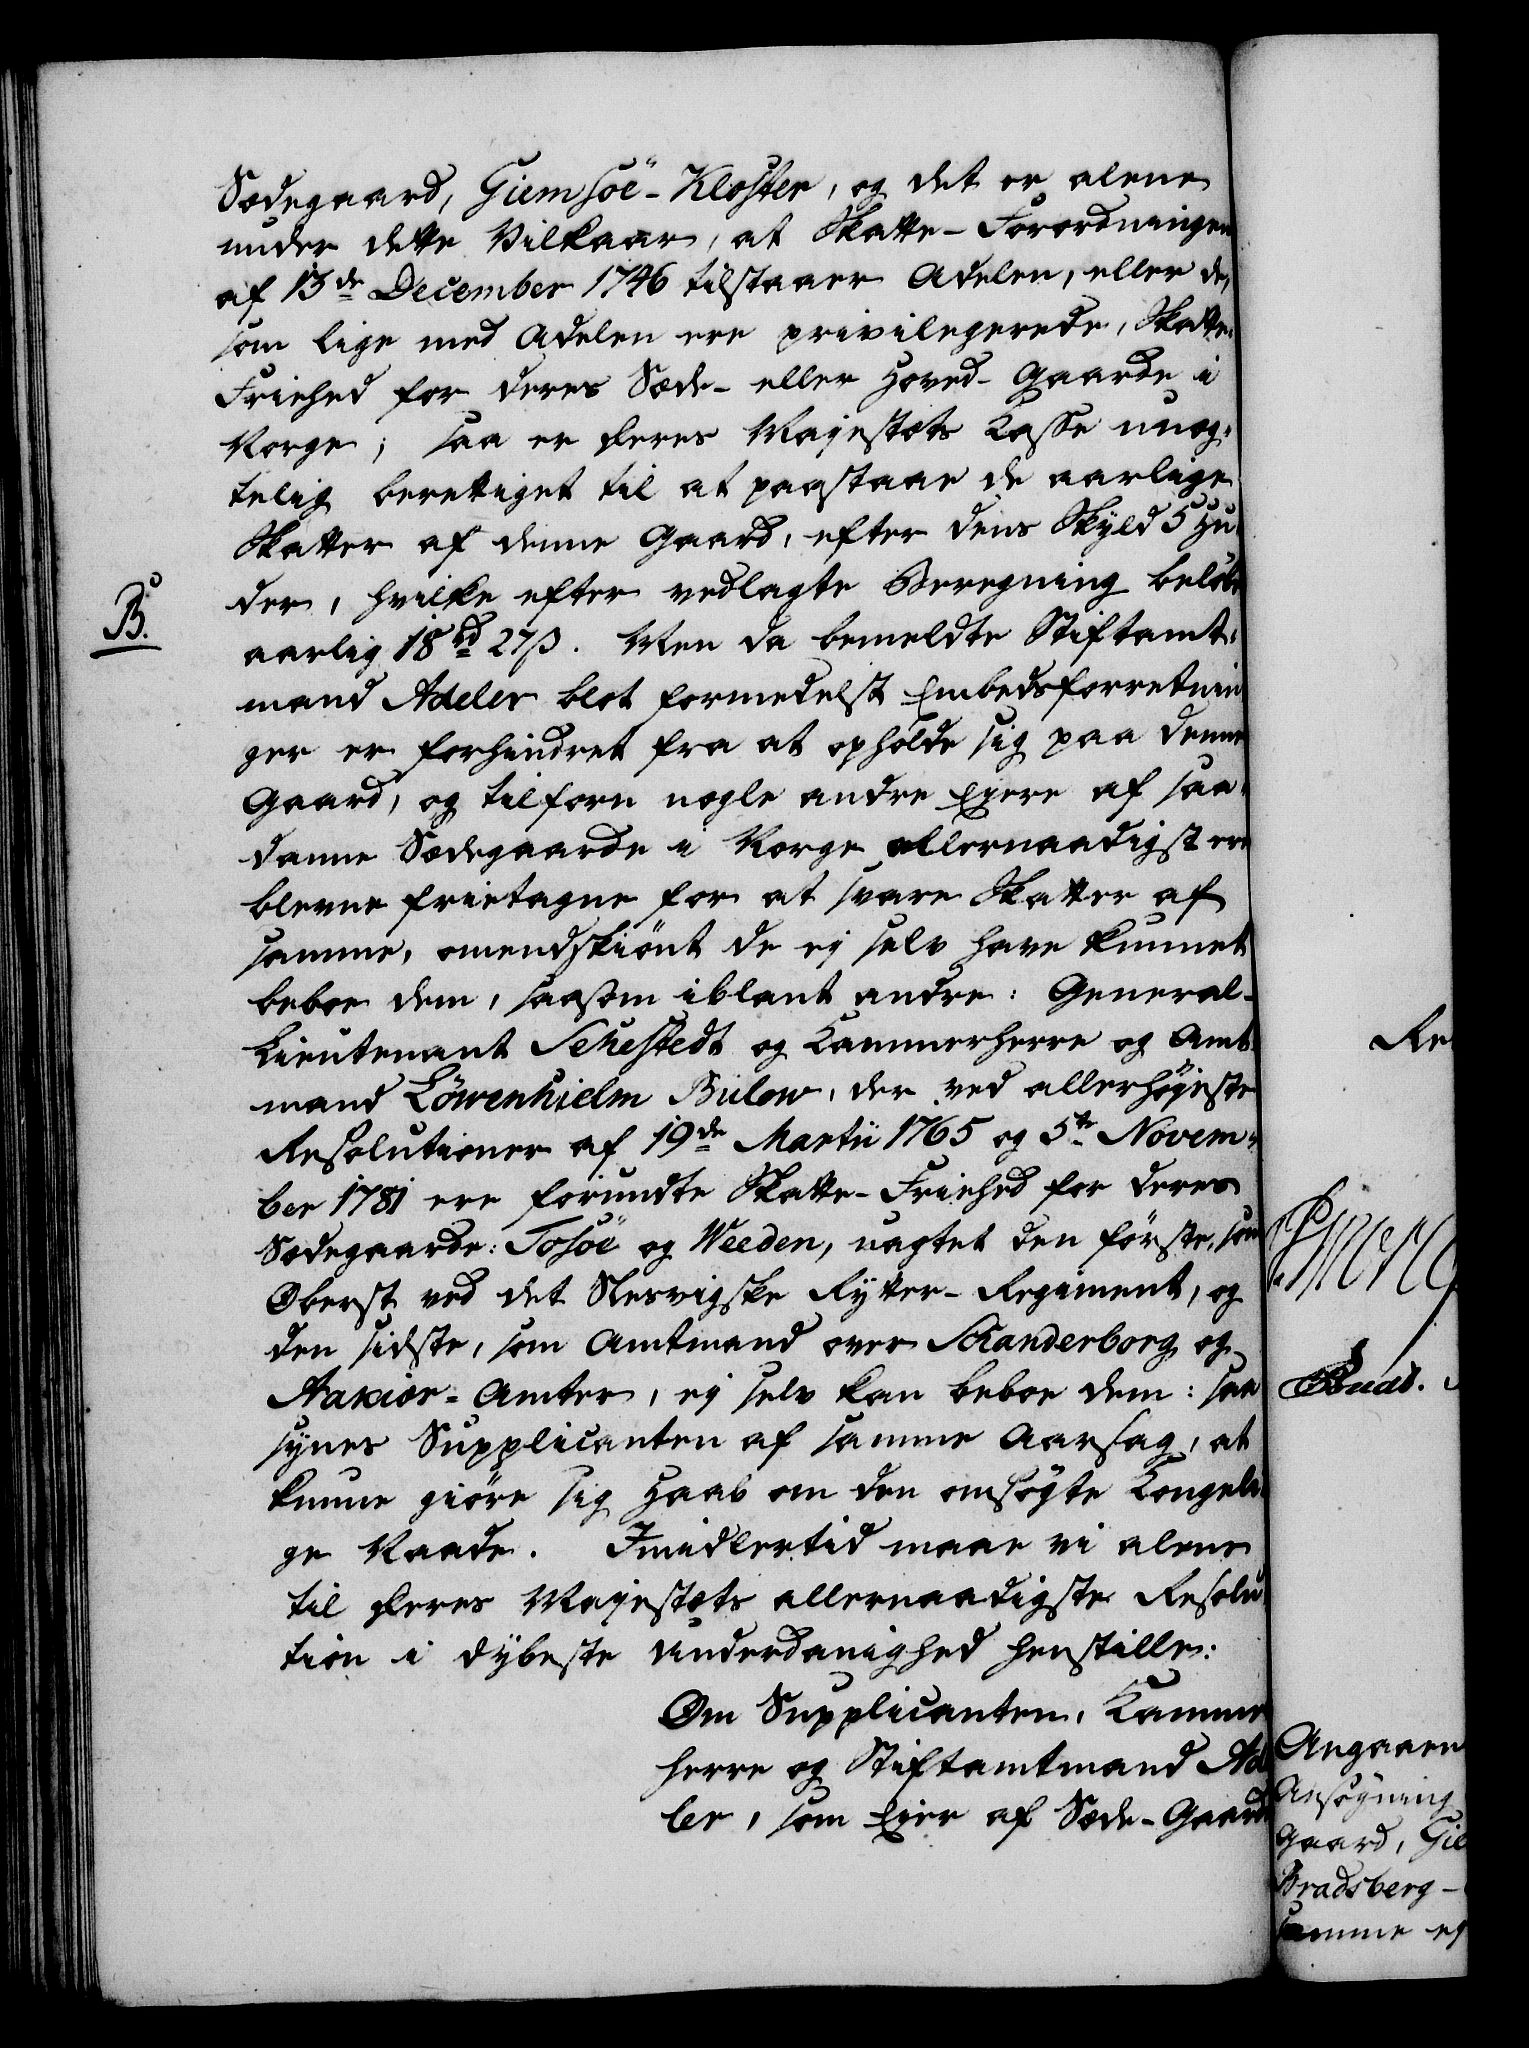 Sædegaard, Giemsöe-Kloster, og det er alene
under dette Vilkaar, at Skatte-Forordningen
af 13de December 1746 tilstaaer Adelen, eller de,
som lige med Adelen ere privilegerede, Skatte-
Friehed for deres Sæde- eller Hoved-Gaarde i
Norge; saa er Deres Majestæts Casse unæg-
telig berettiget til at paastaae de aarlige
Skatter af denne Gaard, efter dens Skyld 5 Hu-
der, hvilke efter vedlagte Beregning belöbe
B.
aarlig 18 rd 27 ß. Men da bemeldte Stiftamt-
mand Adeler blot formedelst Embedsforretnin
ger er forhindret fra at opholde sig paa denne
Gaard, og tilforn nogle andre Eiere af saa-
danne Sædegaarde i Norge allernaadigst ere
blevne frietagne for at svare Skatter af
samme, omendskiönt de ej selv have kunnet
beboe dem, saasom iblant andre: General-
Lieutenant Sehestedt og Cammerherre og Amt-
mand Löwenhielm Bülow, der ved allerhöjeste
Resolutioner af 19de Martii 1765 og 5te Novem-
ber 1781 ere forundte Skatte-Friehed for deres
Sædegaarde: Tosöe og Weeden, uagtet den förste, som
Oberst ved det Slesvigske Rytter-Regiment, og
den sidste, som Amtmand over Schanderborg og
Aakiær-Amter, ej selv kan beboe dem: saa
synes Supplicanten af samme Aarsag, at
kunne giöre sig Haab om den omsögte Kongeli-
ge Naade. Imidlertid maae vi alene
til Deres Majestæts allernaadigste Resolu-
tion i dybeste Underdanighed henstille:
Om Supplicanten, Cammer
herre og Stiftamtmand Ad
ler, som Eier af Sæde-Gaard
Re
Angaaen
Ansögning
Gaard, Gie
Bradsberg-
samme ej